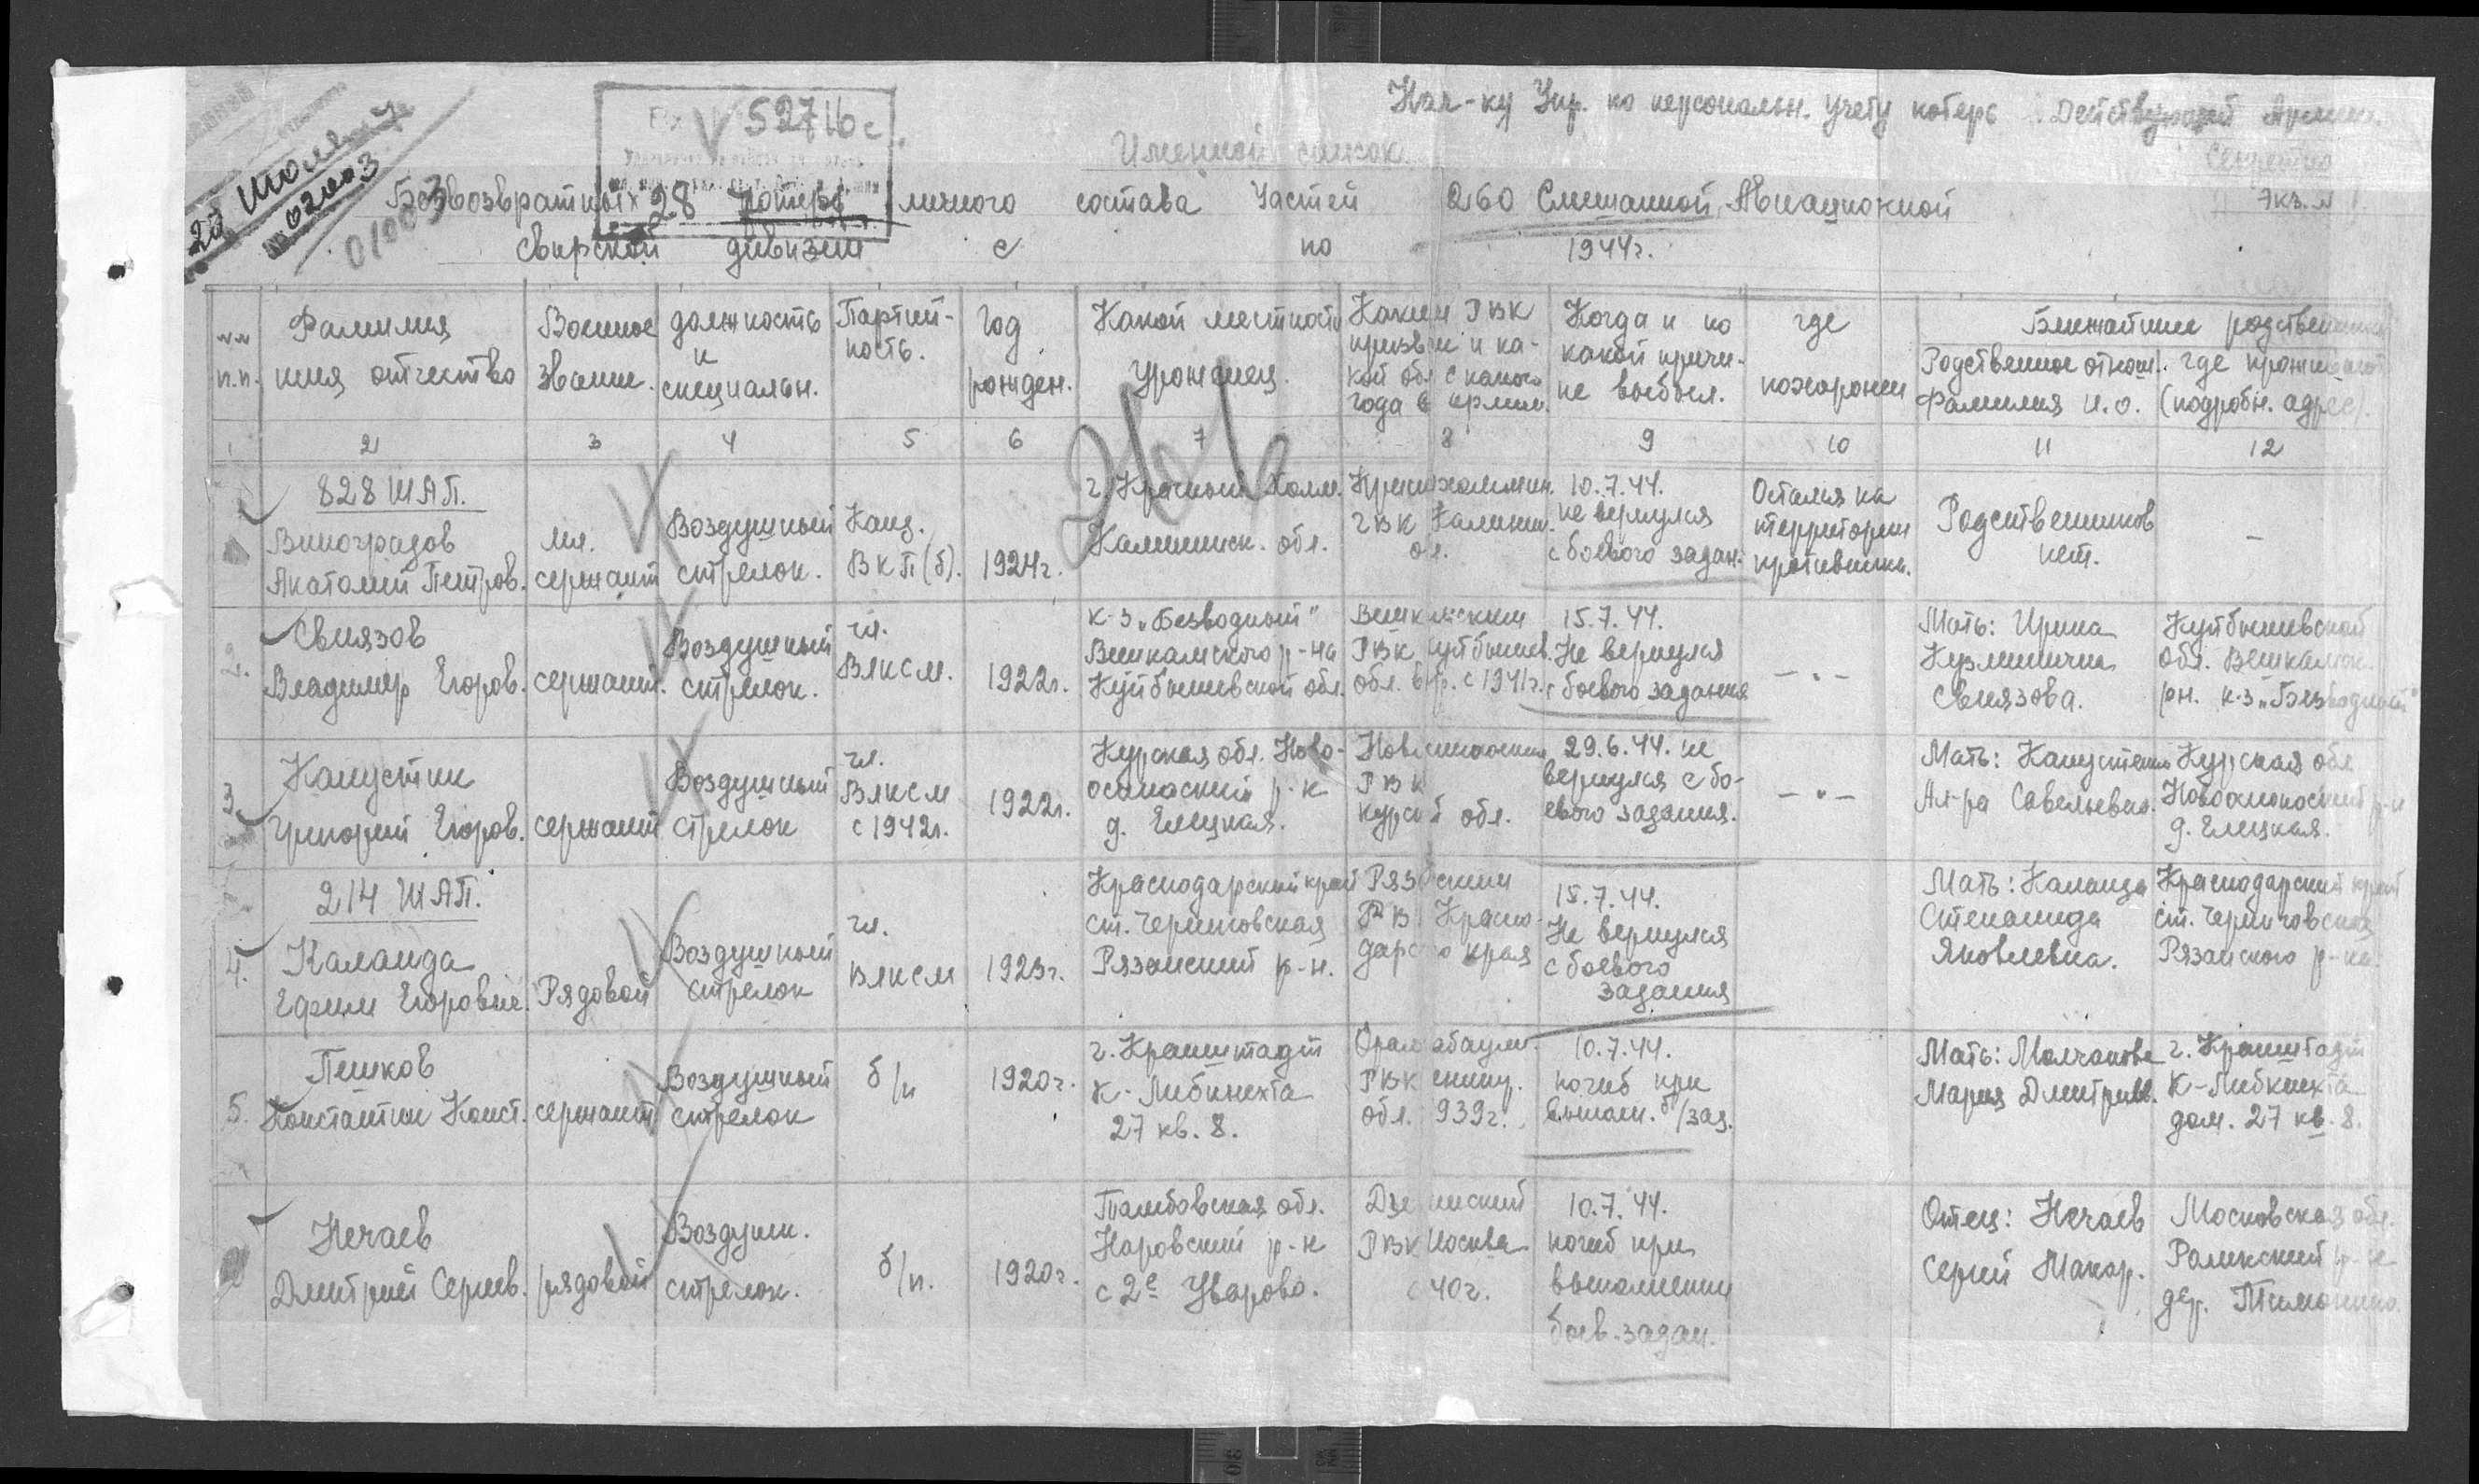 Нач-ку Упр. по персональн. учету потерь Действующей Армии.
Именной список
Секретно
экз. №
27 Июля
№ 02003
01003
Вх 52716с
28
Безвозвратных потерь личного состава частей 260 Смешанной Авиационной
Свирской дивизии с по 1944г.
№№ п.п.
Фамилия
имя отчество
Военное
звание.
должность
и
специальн.
Партий-
ность.
Год
рожден.
Какой местности
уроженец.
Каким РВК
призван и ка-
кой обл. с какого
года в армии.
Когда и по
какой причи-
не выбыл.
где
похоронен
Ближайшие родственники
Родственное отнош.
Фамилия и. о.
где проживают
(подробн. адрес).
1 2 3 4 5 6 7 8 9 10 11 12
266
828 ШАП.
Виноградов
Анатолий Петров.
мл.
сержант
Воздушный
стрелок.
Канд.
ВКП(б).
1924г.
г. Красный Холм.
Калининск. обл.
ГВК Калинин.
10.7.44.
не вернулся
с боевого задан.
Остался на
территории
противника.
Родственников
нет.
–
2.
Свиязов
Владимир Егоров.
сержант.
Воздушный
стрелок.
чл.
ВЛКСМ.
1922г.
к-з „Безводный"
Вешкамского р-на
Куйбышевской обл.
РВК Куйбышев.
обл. с 1941г.
15.7.44.
Не вернулся
с боевого задания
– " –
Мать: Ирина
Кузьминична
Свиязова.
Куйбышевской
обл. Вешкамск.
рн. к-з „Безводный"
3.
Капустин
Григорий Егоров.
сержант
Воздушный
стрелок
чл.
ВЛКСМ
с 1942г.
1922г.
Курская обл. Ново-
оскольский р-н
д. Елецкая.
РВК
Курской обл.
29.6.44. не
вернулся с бо-
евого задания.
– " –
Мать: Капустина
Ал-ра Савельевна.
Курская обл.
Новооскольский р-н
д. Елецкая.
214 ШАП.
4.
Каланда
Ефим Егорович.
Рядовой
Воздушный
стрелок
чл.
ВЛКСМ
1923г.
Краснодарский край
ст. Черниговская
Рязанский р-н.
Рязанским
РВК Красно-
дарского края
15.7.44.
Не вернулся
с боевого
задания
Мать: Каланда
Степанида
Яковлевна.
Краснодарский край
ст. Черниговская
Рязанского р-на.
5.
Пешков
Константин Конст.
сержант
Воздушный
стрелок
б/п
1920г.
г. Кронштадт
К-Либкнехта
27 кв. 8.
Ораниенбаум.
РВК Ленинг.
обл. 1939г.
10.7.44.
погиб при
выполн. б/зад.
Мать: Молчанова
Мария Дмитриев.
г. Кронштадт
К-Либкнехта
дом. 27 кв. 8.
Нечаев
Дмитрий Сергеев.
рядовой
Воздушн.
стрелок.
б/п.
1920г.
Тамбовская обл.
р-н
с 2е Уварово.
РВК Москва
с 40г.
10.7.44.
погиб при
выполнении
боев. задан.
Отец: Нечаев
Сергей Макар.
Московская обл.
Раменский р-н
дер. Тимонино.